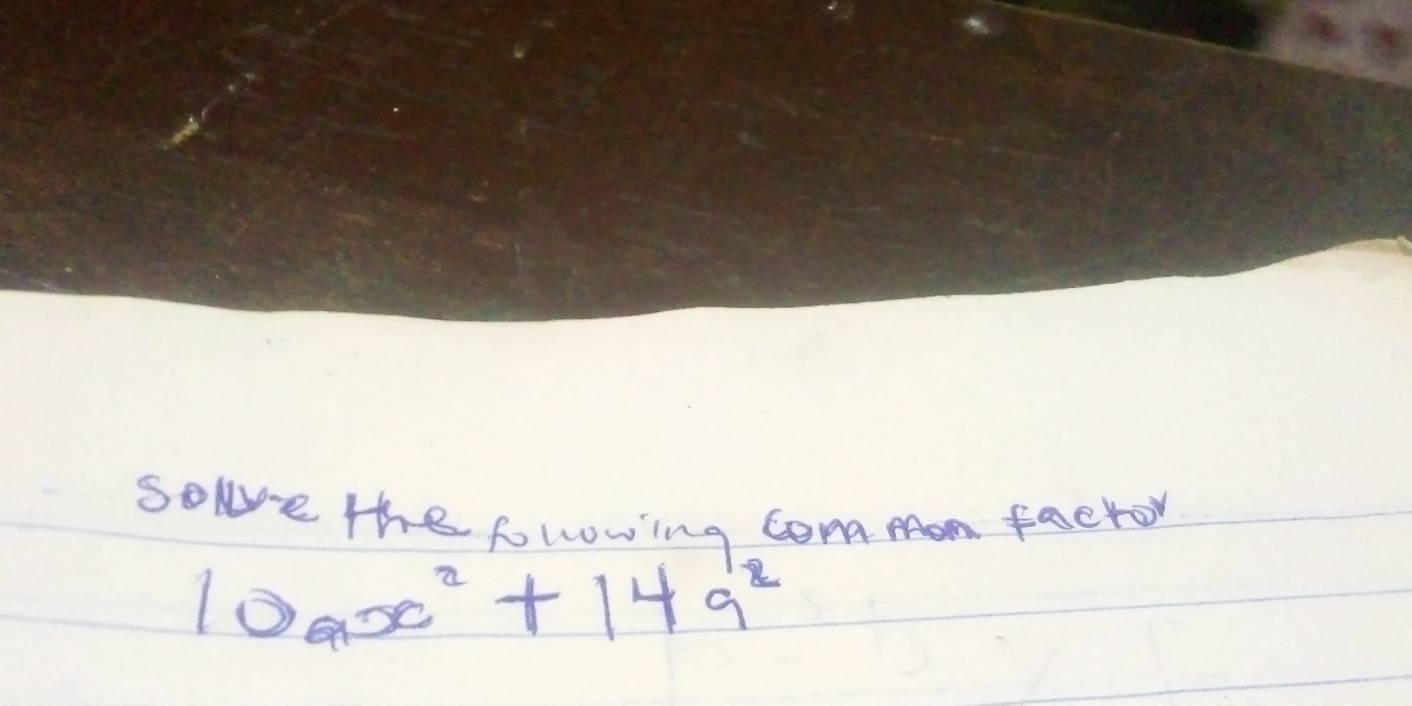 Solve the following common factor
10ax² + 14a²